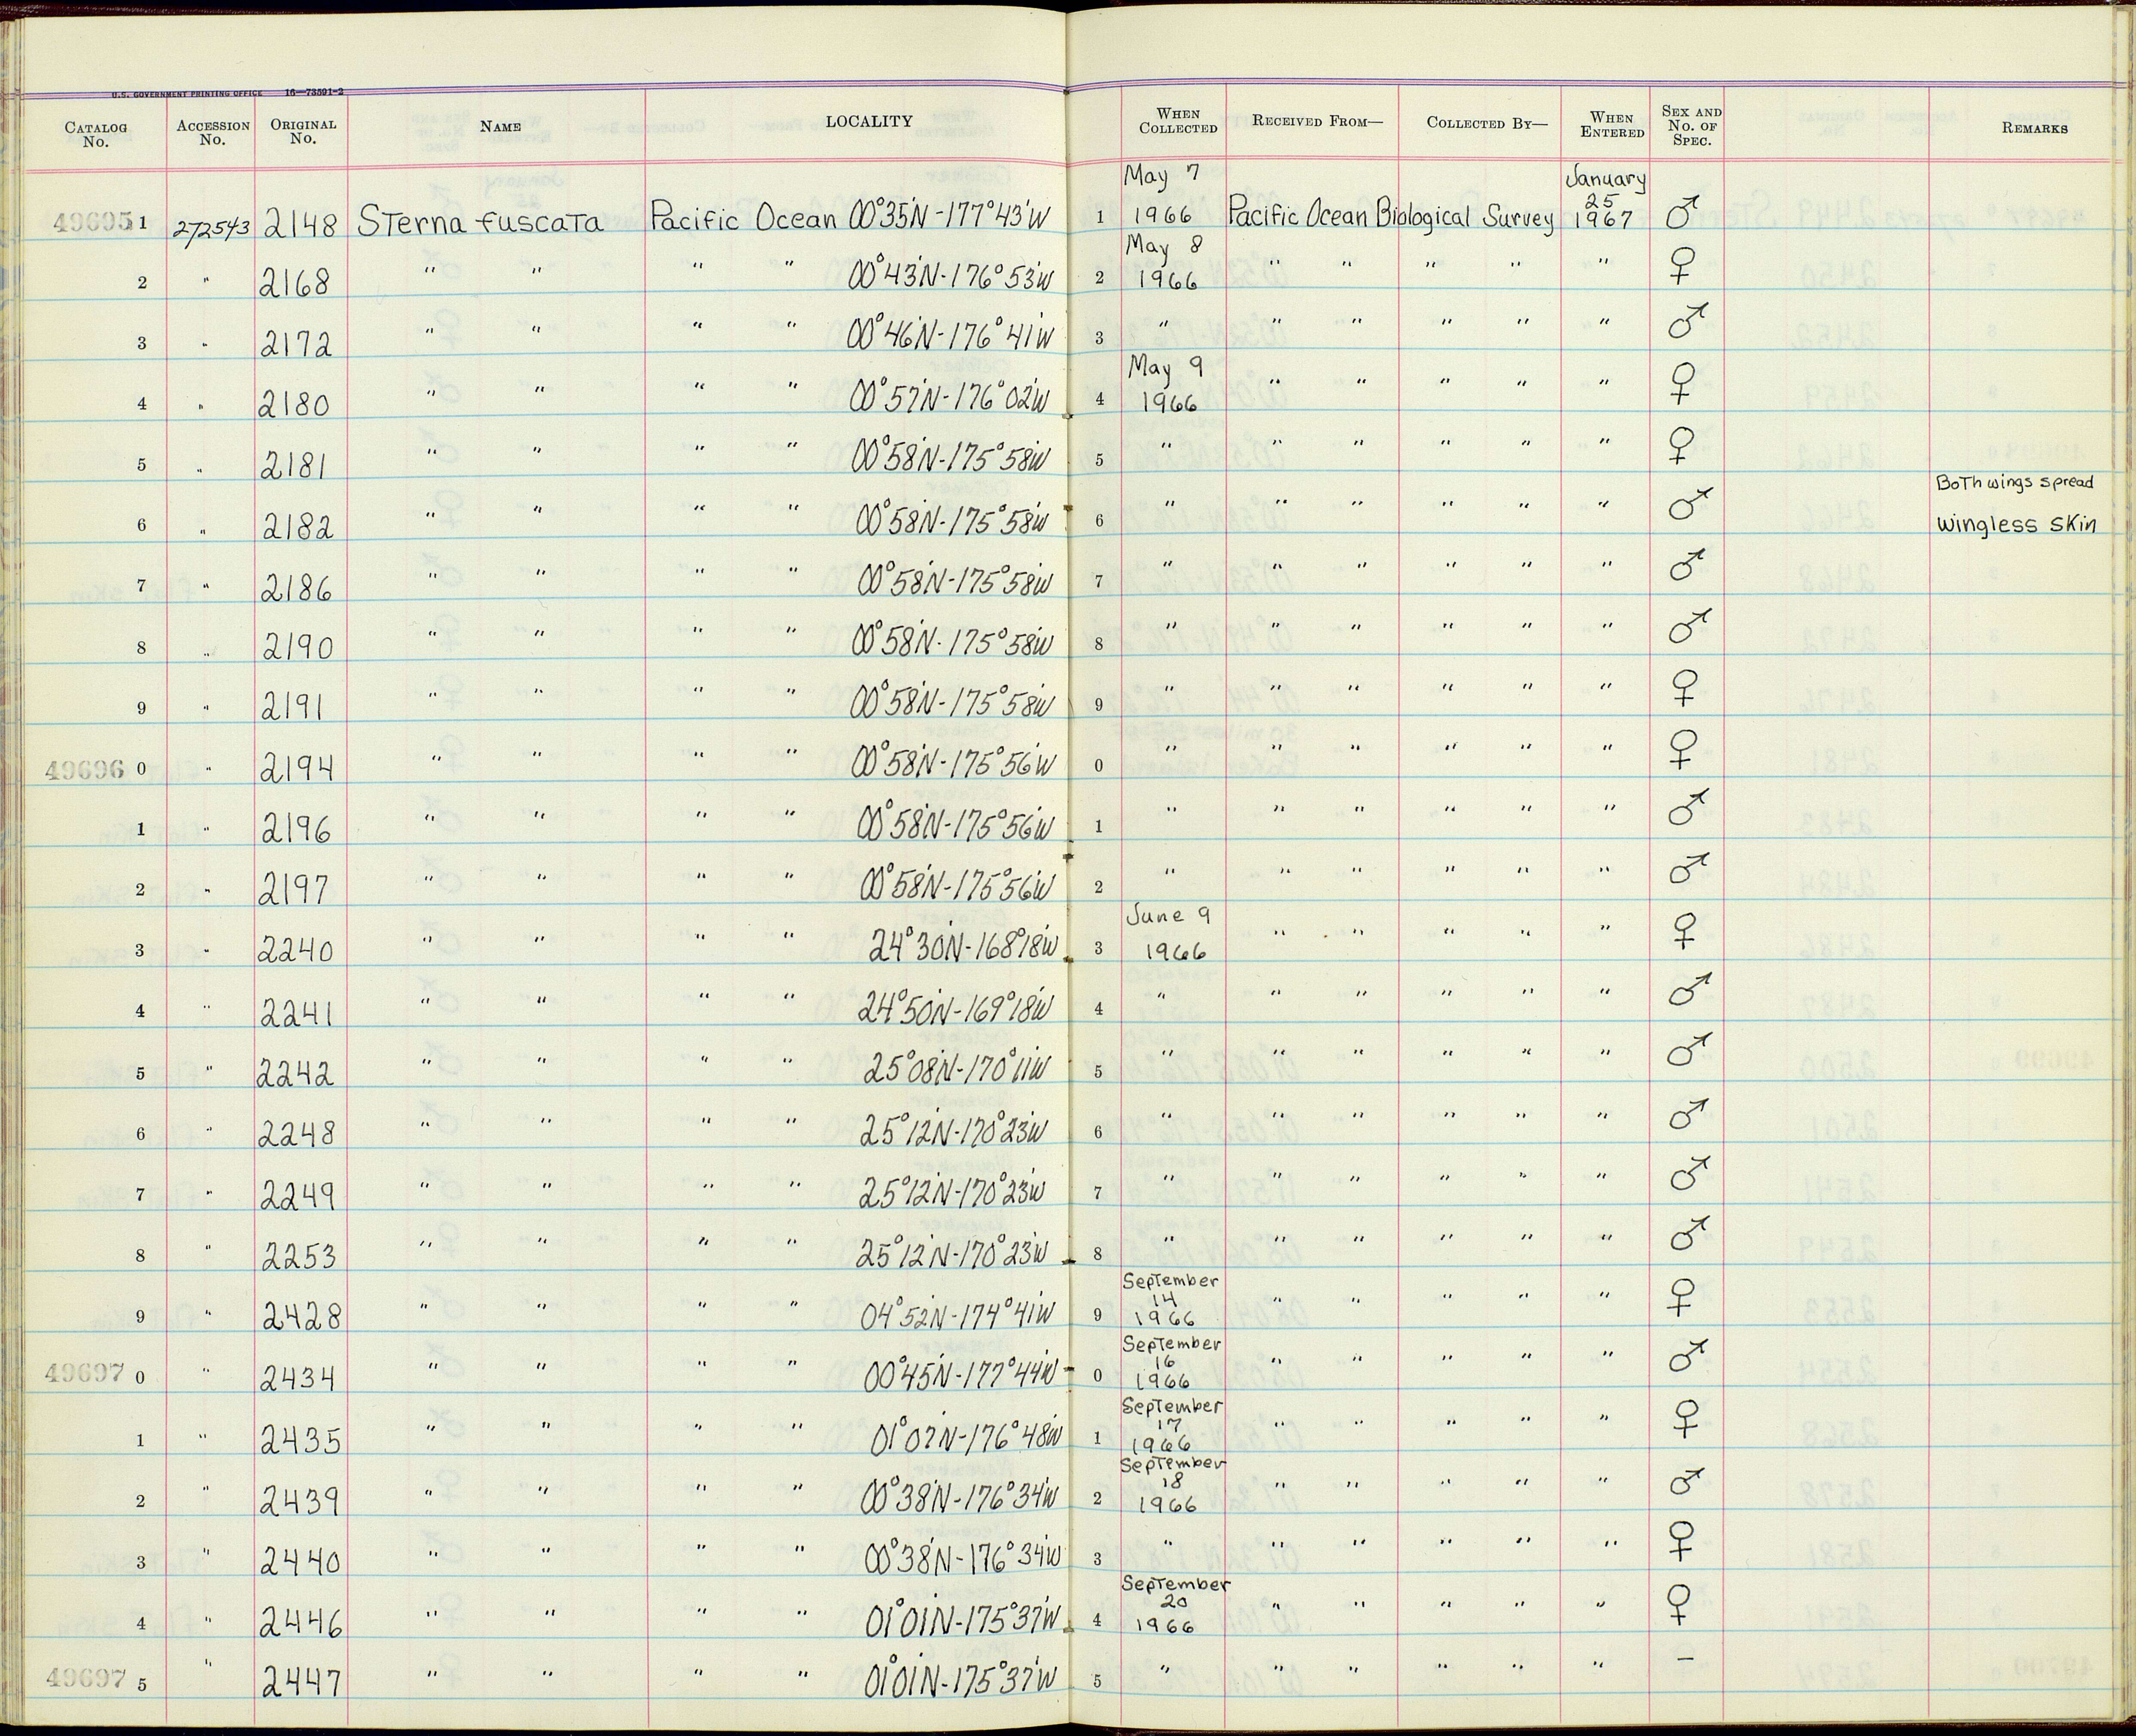 U.S. GOVERNMENT PRINTING OFFICE 16—73591-2
CATALOG No. ACCESSION No. ORIGINAL No. NAME LOCALITY WHEN COLLECTED RECEIVED FROM— COLLECTED BY— WHEN ENTERED SEX AND No. OF SPEC. REMARKS
49695 1 272543 2148 Sterna fuscata Pacific Ocean 00°35'N-177°43'W 1 May 7 1966 Pacific Ocean Biological Survey January 25 1967 ♂
2 " 2168 " " " " 00°43'N-176°53'W 2 May 8 1966 " " " " " ♀
3 " 2172 " " " " 00°46'N-176°41'W 3 " " " " " " ♂
4 " 2180 " " " " 00°57'N-176°02'W 4 May 9 1966 " " " " " ♀
5 " 2181 " " " " 00°58'N-175°58'W 5 " " " " " " ♀
6 " 2182 " " " " 00°58'N-175°58'W 6 " " " " " " ♂ Both wings spread wingless skin
7 " 2186 " " " " 00°58'N-175°58'W 7 " " " " " " ♂
8 " 2190 " " " " 00°58'N-175°58'W 8 " " " " " " ♂
9 " 2191 " " " " 00°58'N-175°58'W 9 " " " " " " ♀
49696 0 " 2194 " " " " 00°58'N-175°56'W 0 " " " " " " ♀
1 " 2196 " " " " 00°58'N-175°56'W 1 " " " " " " ♂
2 " 2197 " " " " 00°58'N-175°56'W 2 " " " " " " ♂
3 " 2240 " " " " 24°30'N-168°18'W 3 June 9 1966 " " " " " ♀
4 " 2241 " " " " 24°50'N-169°18'W 4 " " " " " " ♂
5 " 2242 " " " " 25°08'N-170°11'W 5 " " " " " " ♂
6 " 2248 " " " " 25°12'N-170°23'W 6 " " " " " " ♂
7 " 2249 " " " " 25°12'N-170°23'W 7 " " " " " " ♂
8 " 2253 " " " " 25°12'N-170°23'W 8 " " " " " " ♂
9 " 2428 " " " " 04°52'N-174°41'W 9 September 14 1966 " " " " " ♀
49697 0 " 2434 " " " " 00°45'N-177°44'W 0 September 16 1966 " " " " " ♂
1 " 2435 " " " " 01°07'N-176°48'W 1 September 17 1966 " " " " " ♀
2 " 2439 " " " " 00°38'N-176°34'W 2 September 18 1966 " " " " " ♂
3 " 2440 " " " " 00°38'N-176°34'W 3 " " " " " " ♀
4 " 2446 " " " " 01°01'N-175°37'W 4 September 20 1966 " " " " " ♀
49697 5 " 2447 " " " " 01°01'N-175°37'W 5 " " " " " " –